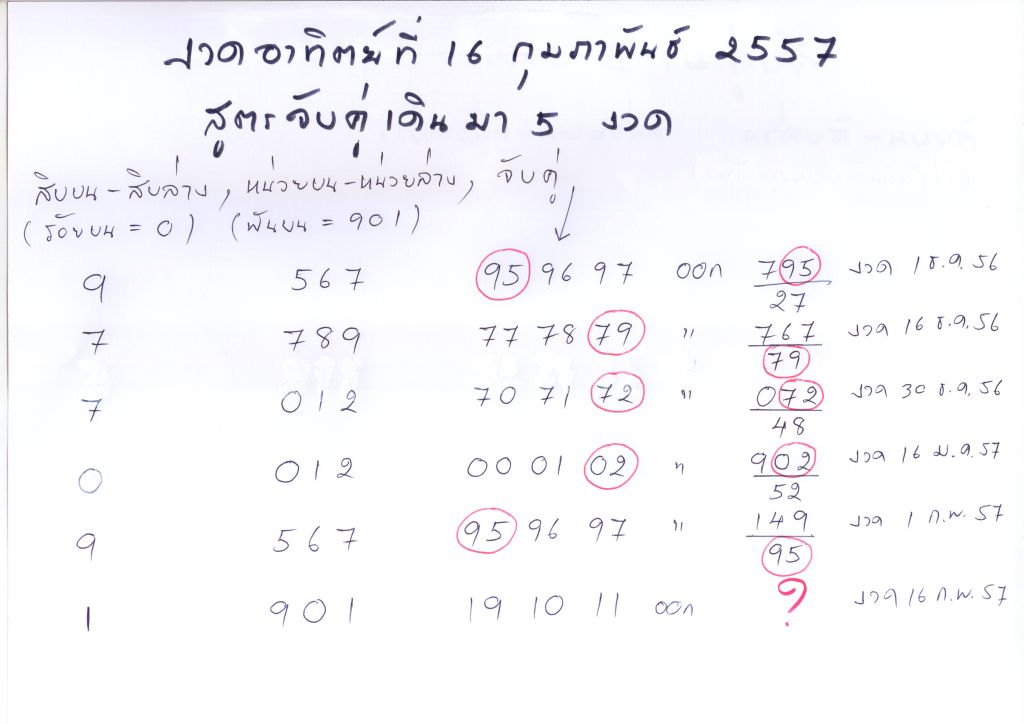 งวดอาทิตย์ที่ 16 กุมภาพันธ์ 2557
สูตรจับคู่เดินมา 5 งวด
สิบบน-สิบล่าง, หน่วยบน-หน่วยล่าง, จับคู่
(ร้อยบน = 0) (พันบน = 901)
9 567 95 96 97 ออก 795 งวด 1 ธ.ค. 56
27
7 789 77 78 79 " 767 งวด 16 ธ.ค. 56
79
7 012 70 71 72 " 072 งวด 30 ธ.ค. 56
48
0 012 00 01 02 " 902 งวด 16 ม.ค. 57
52
9 567 95 96 97 " 149 งวด 1 ก.พ. 57
95
1 901 19 10 11 ออก ? งวด 16 ก.พ. 57